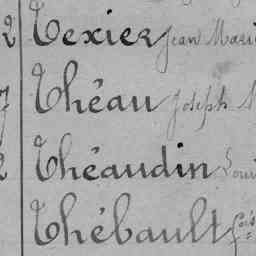 2 Texier Jean Marie
Théau Joseph
2 Théaudin Louis
Thébault fçois